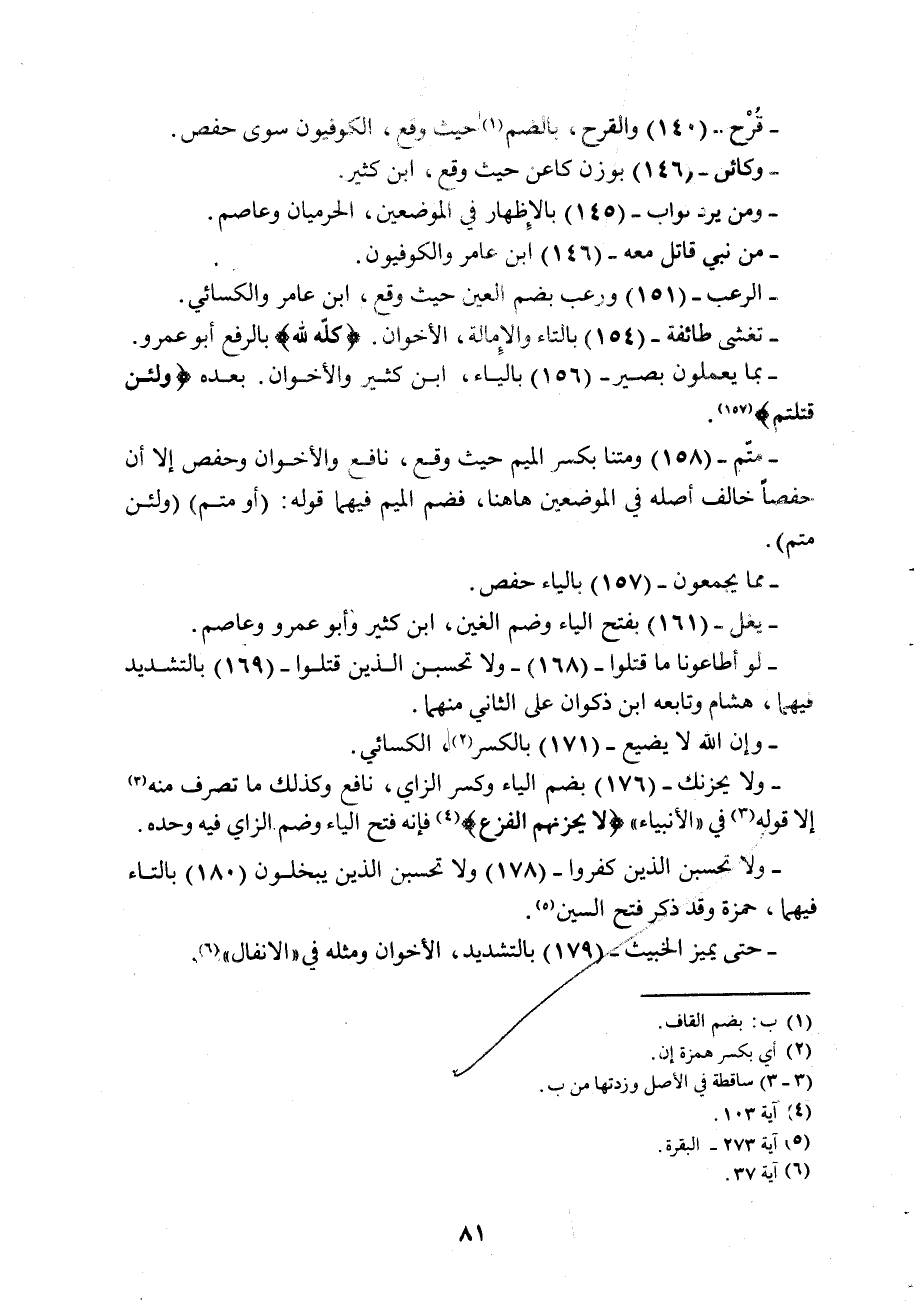 ـ قُرْح ـ (١٤٠) والقرح، بالضم(١) حيث وقع، الكوفيون سوى حفص.
ـ وكائن ـ (١٤٦) بوزن كاعن حيث وقع، ابن كثير.
ـ ومن يرد ثواب ـ (١٤٥) بالإظهار في الموضعين، الحرميان وعاصم.
ـ من نبي قاتل معه ـ (١٤٦) ابن عامر والكوفيون.
ـ الرعب ـ (١٥١) ورعب بضم العين حيث وقع، ابن عامر والكسائي.
ـ تغشى طائفة ـ (١٥٤) بالتاء والإمالة، الأخوان. ﴿كلّه لله﴾ بالرفع أبو عمرو.
ـ بما يعملون بصير ـ (١٥٦) بالياء، ابن كثير والأخوان. بعده ﴿ولئن
قتلتم﴾(١٥٧).
ـ متّم ـ (١٥٨) ومتنا بكسر الميم حيث وقع، نافع والأخوان وحفص إلا أن
حفصاً خالف أصله في الموضعين هاهنا، فضم الميم فيهما قوله: (أو متم) (ولئن
متم).
ـ مما يجمعون ـ (١٥٧) بالياء حفص.
ـ يغل ـ (١٦١) بفتح الياء وضم الغين، ابن كثير وأبو عمرو وعاصم.
ـ لو أطاعونا ما قتلوا ـ (١٦٨) ـ ولا تحسبن الذين قتلوا ـ (١٦٩) بالتشديد
فيهما، هشام وتابعه ابن ذكوان على الثاني منهما.
ـ وإن الله لا يضيع ـ (١٧١) بالكسر(٢)، الكسائي.
ـ ولا يحزنك ـ (١٧٦) بضم الياء وكسر الزاي، نافع وكذلك ما تصرف منه(٣)
إلا قوله(٣) في «الأنبياء» ﴿لا يحزنهم الفزع﴾(٤) فإنه فتح الياء وضم الزاي فيه وحده.
ـ ولا تحسبن الذين كفروا ـ (١٧٨) ولا تحسبن الذين يبخلون (١٨٠) بالتاء
فيهما، حمزة وقد ذكر فتح السين(٥).
ـ حتى يميز الخبيث ـ (١٧٩) بالتشديد، الأخوان ومثله في «الانفال»(٦).
(١) ب: بضم القاف.
(٢) أي بكسر همزة إن.
(٣ ـ ٣) ساقطة في الأصل وزدتها من ب.
(٤) آية ١٠٣.
(٥) آية ٢٧٣ ـ البقرة.
(٦) آية ٣٧.
٨١